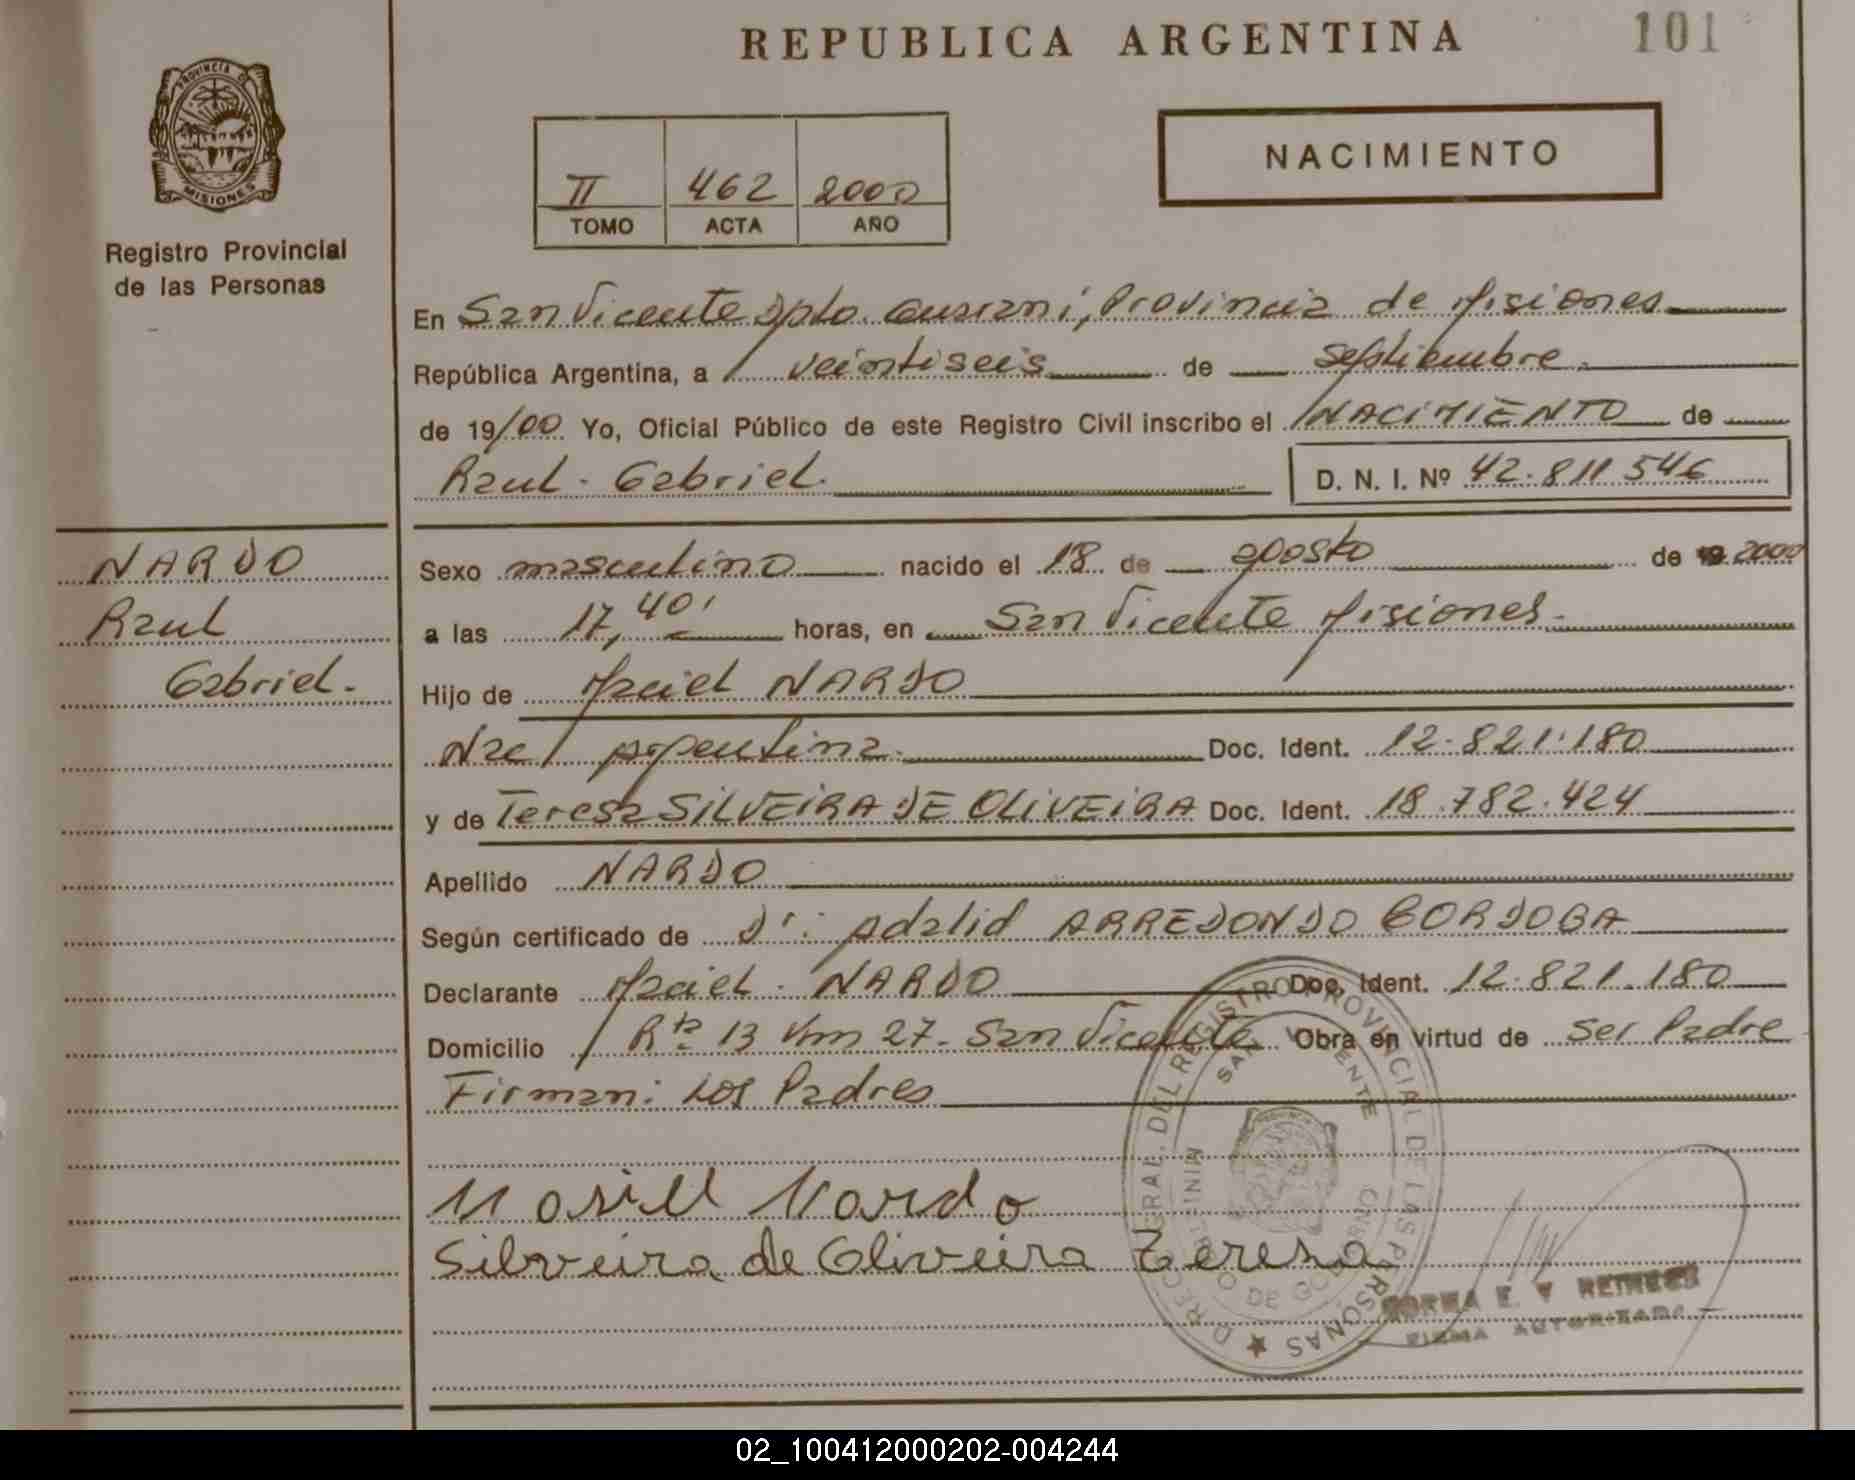 REPUBLICA ARGENTINA
101
PROVINCIA DE
MISIONES
Registro Provincial
de las Personas
II 462 2000
TOMO ACTA AÑO
NACIMIENTO
En San Vicente Dpto. Guarani, Provincia de Misiones
República Argentina, a veintiseis de septiembre.
de 19/00 Yo, Oficial Público de este Registro Civil inscribo el NACIMIENTO de
Raul. Gabriel.
D. N. I. Nº 42.811.546
NARDO
Raul
Gabriel.
Sexo masculino nacido el 18 de agosto de 19 2000
a las 17,40' horas, en San Vicente Misiones.
Hijo de Maciel NARDO
Nac argentina. Doc. Ident. 12.821.180
y de Teresa SILVEIRA DE OLIVEIRA Doc. Ident. 18.782.424
Apellido NARDO
Según certificado de Dr: Adalid ARREDONDO CORDOBA
Declarante Maciel. NARDO Doc. Ident. 12.821.180
Domicilio Rta 13 Km 27. San Vicente Obra en virtud de ser Padre
Firman: Los Padres
Nardo
Silveira de Oliveira Tereza
D RECC GRAL. DEL REGISTRO PROVINCIAL DE LAS PERSONAS
SAN VICENTE
MINISTERIO DE GOBIERNO
FIRMA AUTORIZADA
02_100412000202-004244